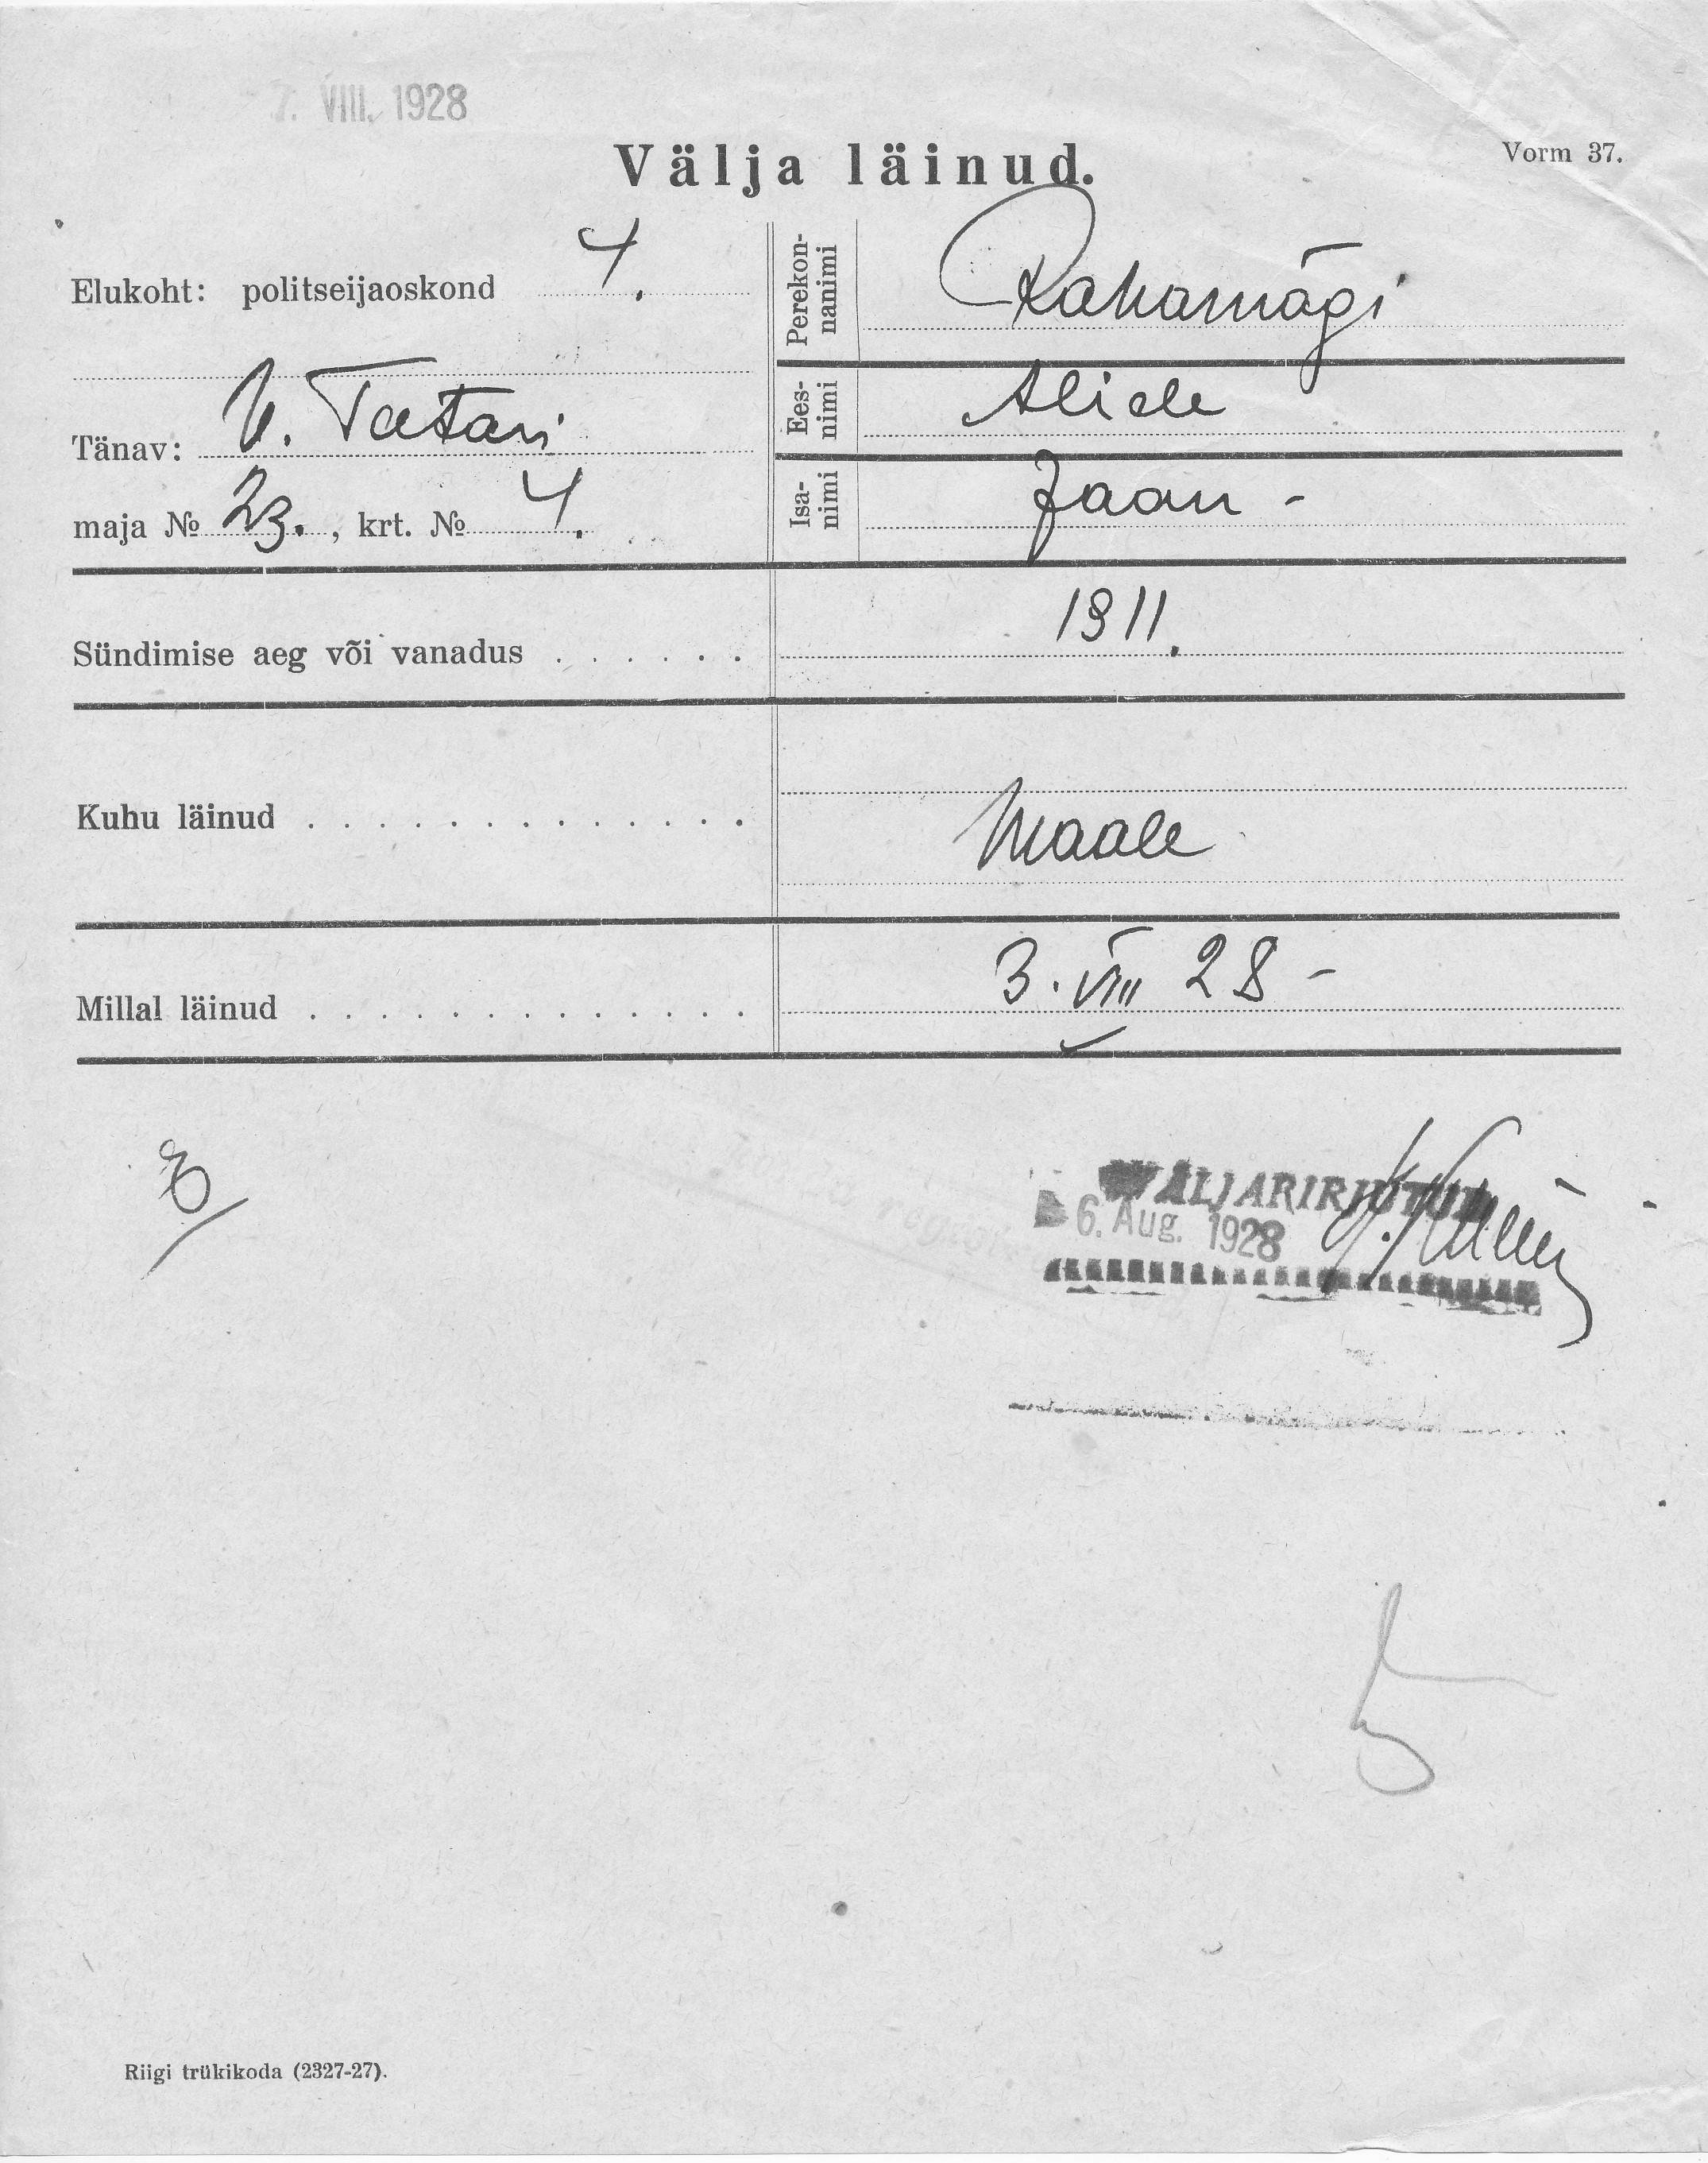 7. VIII. 1928
Välja läinud.
Vorm 37.
Elukoht: politseijaoskond 4.
Tänav: V. Tatari
maja № 23., krt. № 4.
Perekon-
nanimi
Rahamägi
Ees-
nimi
Alide
Isa-
nimi
Jaan -
Sündimise aeg või vanadus . . . . . . 1911.
Kuhu läinud . . . . . . . . . . . . . . Maale
Millal läinud . . . . . . . . . . . . . . 3. VIII 28 -
VÄLJAKIRJUTUD
6. Aug. 1928
Riigi trükikoda (2327-27).